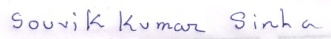 Souvik Kumar Sinha